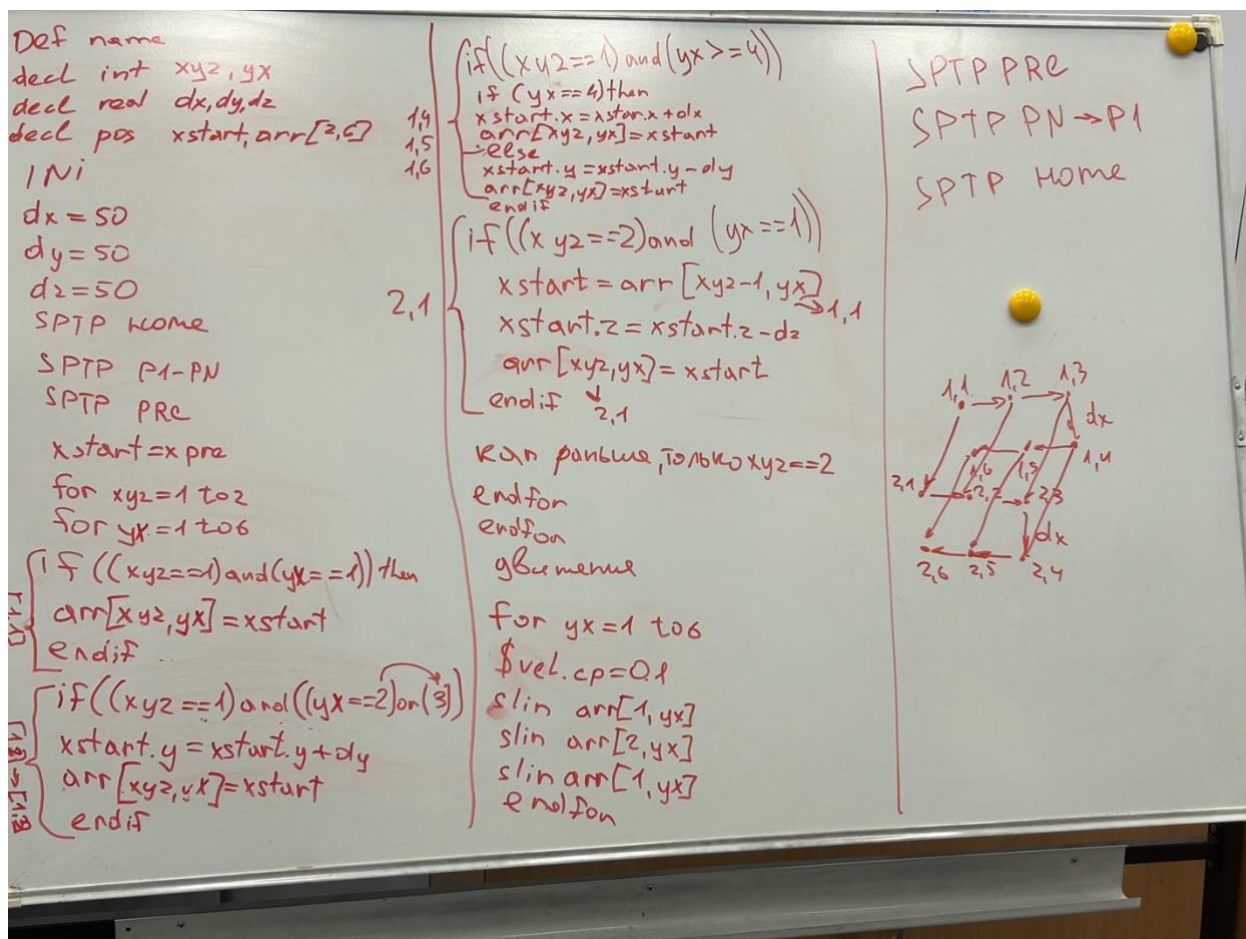 Def name
decl int xyz, yx
decl real dx, dy, dz
decl pos xstart, arr[2,6]
INI
dx = 50
dy = 50
dz = 50
SPTP HOME
SPTP P1-PN
SPTP PRE
xstart = xpre
for xyz = 1 to 2
for yx = 1 to 6
if ((xyz==1) and (yx==1)) then
arr[xyz, yx] = xstart
endif
if ((xyz==1) and ((yx==2) or (3]))
xstart.y = xstart.y + dy
arr[xyz, yx] = xstart
endif
1,4
1,5
1,6
if ((xyz==1) and (yx>=4))
if (yx==4) then
xstart.x = xstar.x + dx
arr[xyz, yx] = xstart
else
xstart.y = xstart.y - dy
arr[xyz, yx] = xstart
endif
2,1
if ((xyz==2) and (yx==1))
xstart = arr [xyz-1, yx]
→1,1
xstart.z = xstart.z - dz
arr[xyz, yx] = xstart
endif
2,1
как раньше, только xyz==2
endfor
endfor
движения
for yx = 1 to 6
$vel.cp=0.1
slin arr[1, yx]
slin arr[2, yx]
slin arr[1, yx]
endfor
SPTP PRE
SPTP PN→P1
SPTP HOME
1,1 1,2 1,3
dx
1,6 1,5 1,4
2,1 2,2 2,3
dx
2,6 2,5 2,4